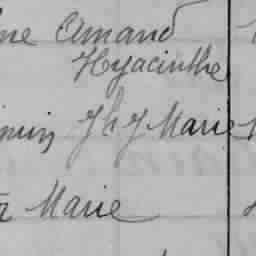 ne Amand
Hyacinthe
min Jh J Marie
Marie